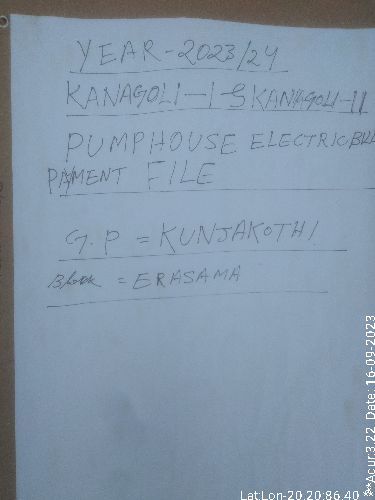 YEAR-2023/24
KANAGOLI-I & KANAGOLI-II
PUMPHOUSE ELECTRIC BILL
PAYMENT FILE
G.P = KUNJAKOTHI
Block = ERASAMA
LatLon-20.20:86.40
**Acur:3.22 Date: 16-09-2023